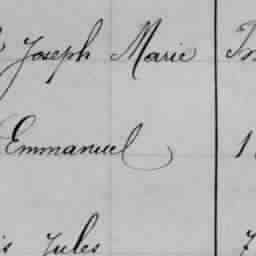 Joseph Marie
Emmanuel
Jules